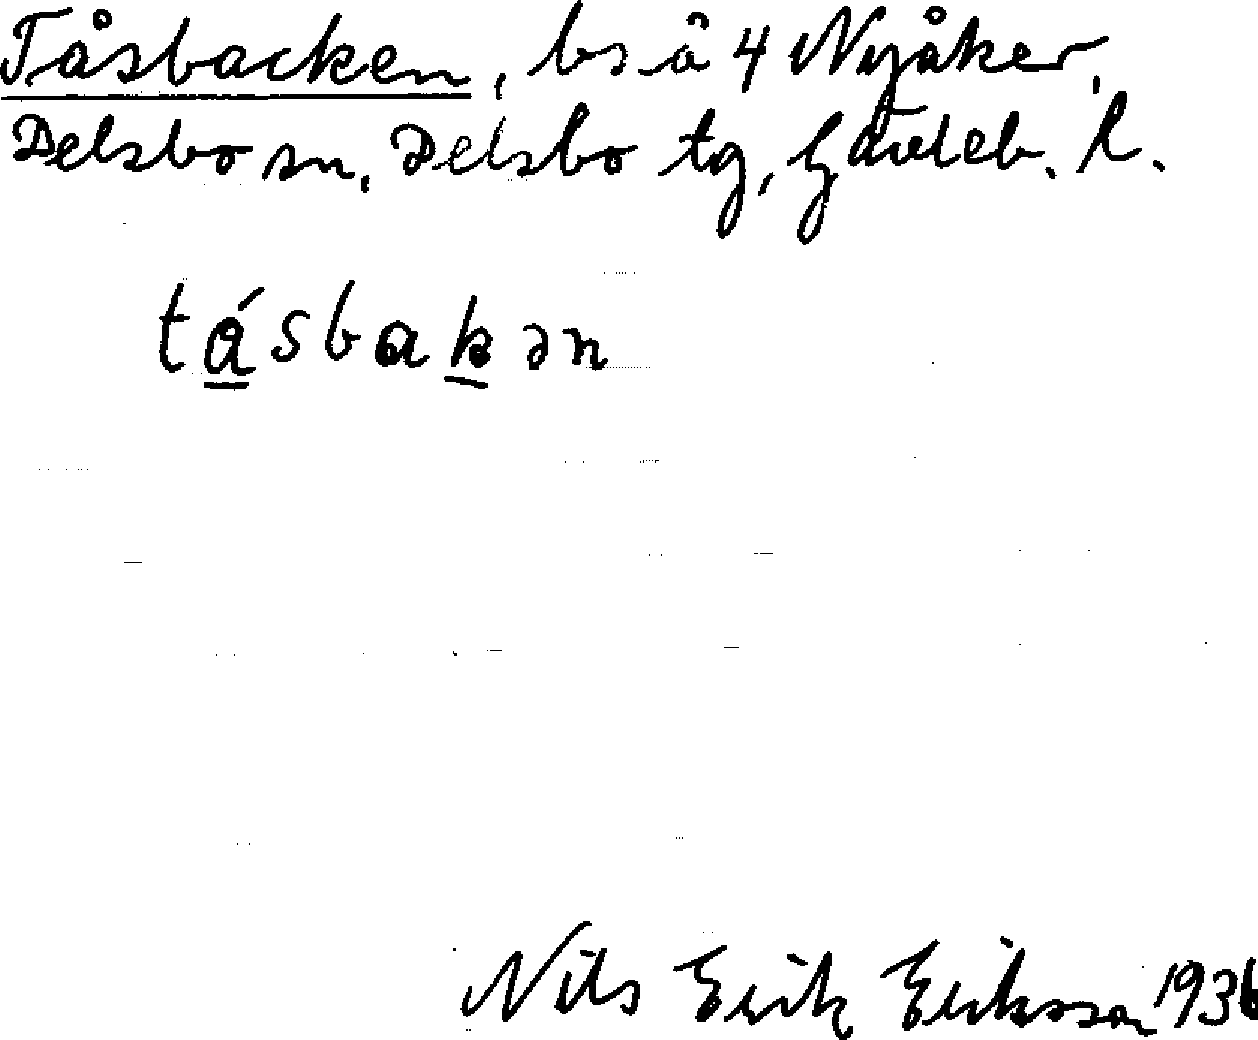 Tåsbacken, bs å 4 Nyåker,
Delsbo sn, Delsbo tg, Gävleb. l.
tásbakən
Nils Erik Eriksson 1936